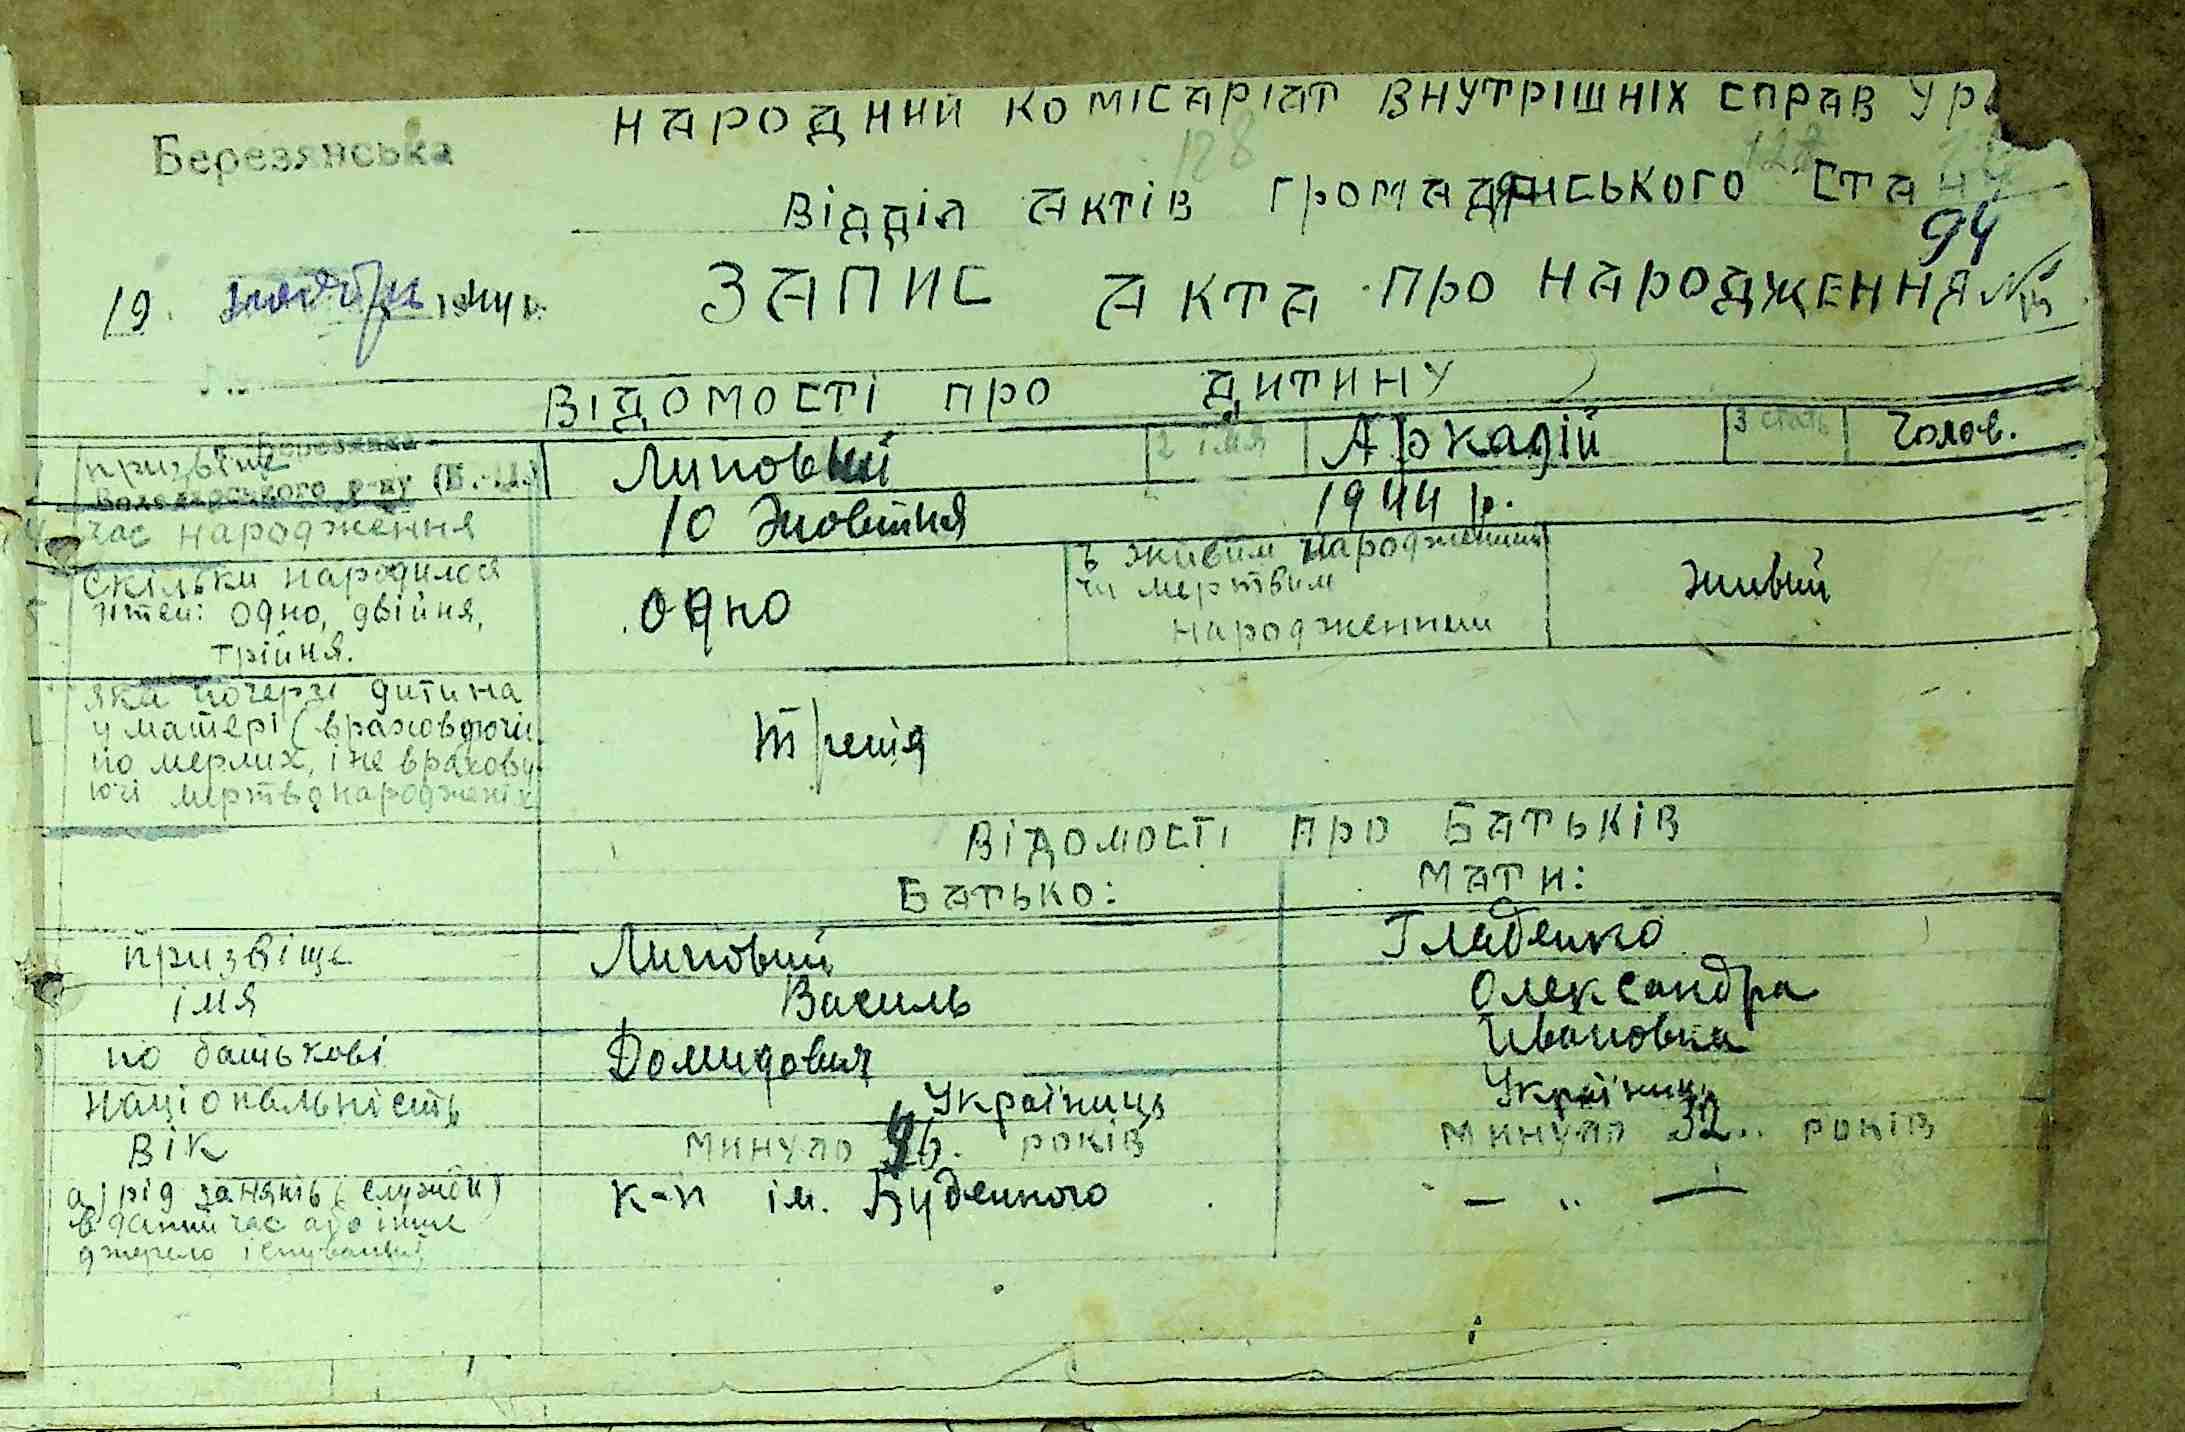 НАРОДНИЙ КОМІСАРІАТ ВНУТРІШНІХ СПРАВ УР
Березянська
128
ВІДДІЛ АКТІВ ГРОМАДЯНСЬКОГО СТАНУ
94
19. 1944 р. ЗАПИС АКТА ПРО НАРОДЖЕННЯ №
ВІДОМОСТІ ПРО ДИТИНУ
призвіще Липовий 2 імя Аркадій 3 стать Чолов.
час народження 10 Жовтня 1944 р.
Скільки народилося
дітей: одно, двійня,
трійня.
одно
живим народженням
чи мертвим
народженним
живий
яка по черзі дитина
у матері (враховуючи
померлих, і не врахову-
ючі мертвонароджених
третя
ВІДОМОСТІ ПРО БАТЬКІВ
БАТЬКО: МАТИ:
призвіще Липовий Гладенко
імя Василь Олександра
по батькові Домидович Ивановна
Національність Українець Українець
Вік минуло 36. років минуло 32.. років
а) рід занять (служби)
в даний час або інше
джерело існування
к-п ім. Буденного — " —